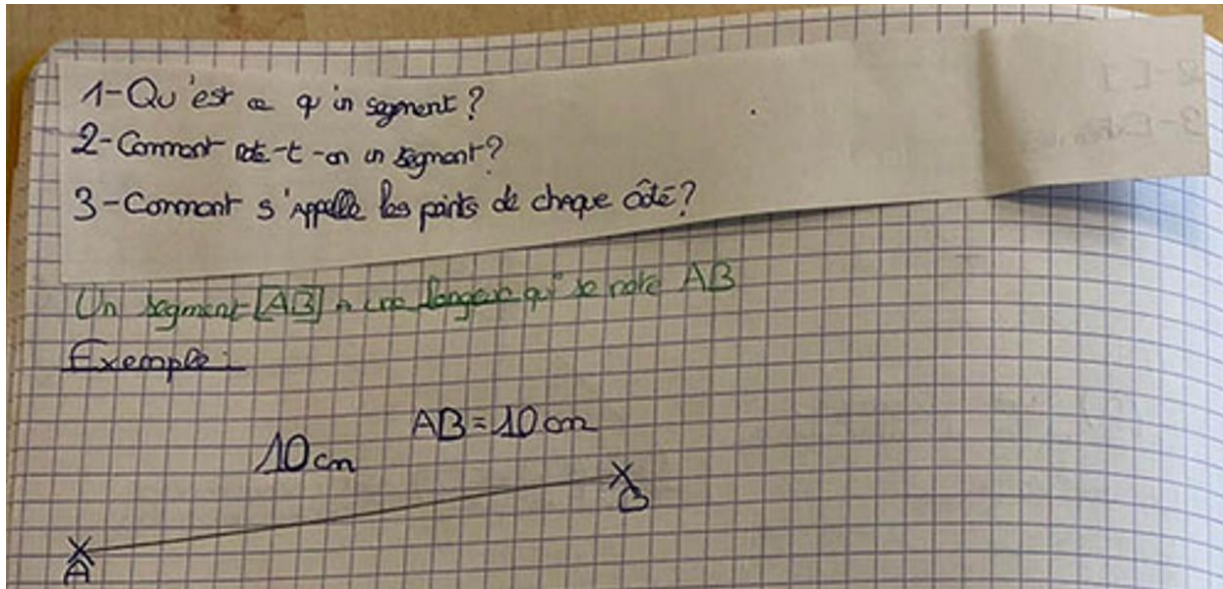 1-Qu'est ce qu'un segment?
2-Comment note-t-on un segment?
3-Comment s'appelle les points de chaque côté?
Un segment [AB] a une longeur qui se note AB
Exemple:
AB=10cm
10cm
B
A
2-[ ]